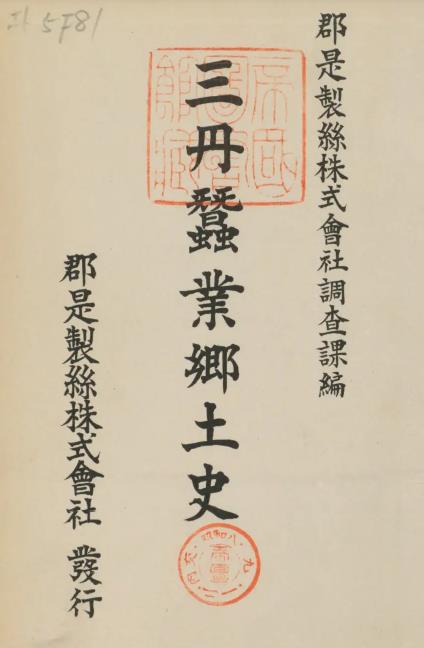 郡是製絲株式會社調查課編
三丹蠶業郷土史
郡是製絲株式會社 發行
帝國圖書館藏